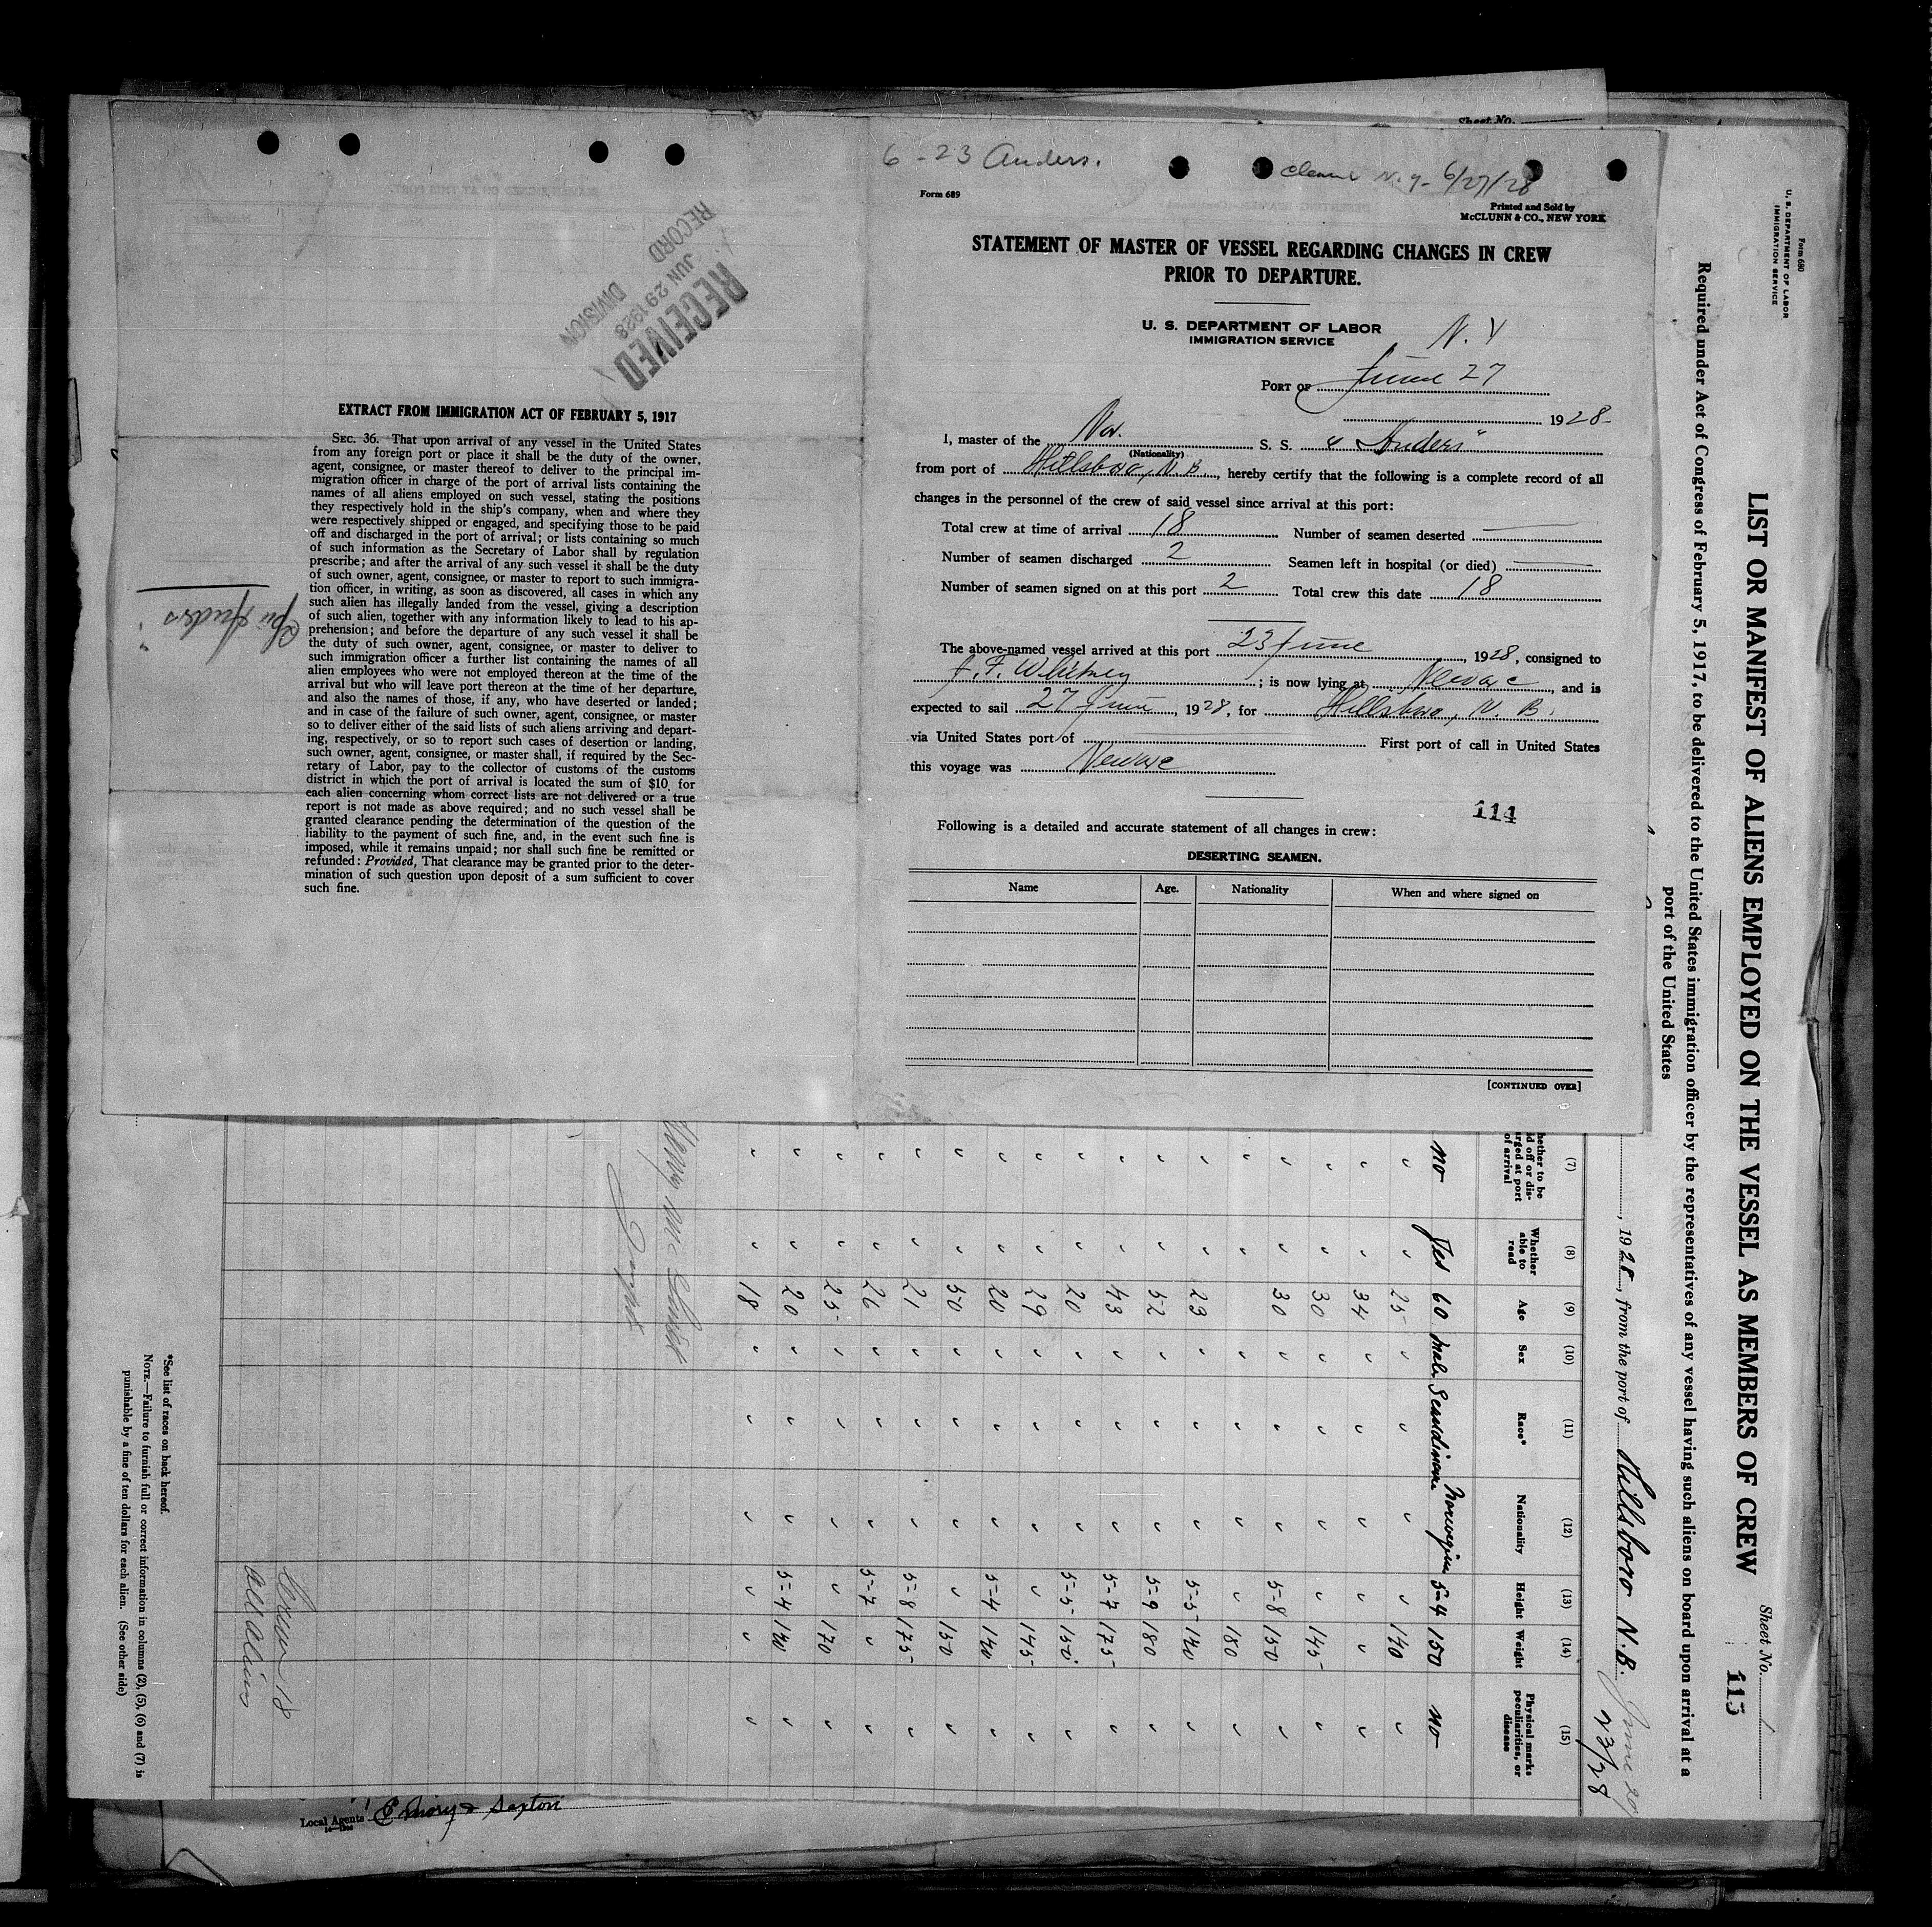 Sheet No.
6 - 23 Anders.
N. Y- 6/27/28
Form 689
Printed and Sold by
McCLUNN & CO., NEW YORK
STATEMENT OF MASTER OF VESSEL REGARDING CHANGES IN CREW
PRIOR TO DEPARTURE.
U. S. DEPARTMENT OF LABOR
IMMIGRATION SERVICE
N. Y
PORT OF June 27
1928
I, master of the Nor. S. S. "Anders"
(Nationality)
from port of Hillsboro, N. B., hereby certify that the following is a complete record of all
changes in the personnel of the crew of said vessel since arrival at this port:
Total crew at time of arrival 18 Number of seamen deserted
Number of seamen discharged 2 Seamen left in hospital (or died)
Number of seamen signed on at this port 2 Total crew this date 18
The above-named vessel arrived at this port 23 June, 1928, consigned to
J. F. Whitney; is now lying at , and is
expected to sail 27 June, 1928, for Hillsboro, N. B.
via United States port of First port of call in United States
this voyage was
114
Following is a detailed and accurate statement of all changes in crew:
DESERTING SEAMEN.
Name Age. Nationality When and where signed on
[CONTINUED OVER]
RECEIVED
JUN 29 1928
RECORD DIVISION
EXTRACT FROM IMMIGRATION ACT OF FEBRUARY 5, 1917
SEC. 36. That upon arrival of any vessel in the United States
from any foreign port or place it shall be the duty of the owner,
agent, consignee, or master thereof to deliver to the principal im-
migration officer in charge of the port of arrival lists containing the
names of all aliens employed on such vessel, stating the positions
they respectively hold in the ship's company, when and where they
were respectively shipped or engaged, and specifying those to be paid
off and discharged in the port of arrival; or lists containing so much
of such information as the Secretary of Labor shall by regulation
prescribe; and after the arrival of any such vessel it shall be the duty
of such owner, agent, consignee, or master to report to such immigra-
tion officer, in writing, as soon as discovered, all cases in which any
such alien has illegally landed from the vessel, giving a description
of such alien, together with any information likely to lead to his ap-
prehension; and before the departure of any such vessel it shall be
the duty of such owner, agent, consignee, or master to deliver to
such immigration officer a further list containing the names of all
alien employees who were not employed thereon at the time of the
arrival but who will leave port thereon at the time of her departure,
and also the names of those, if any, who have deserted or landed;
and in case of the failure of such owner, agent, consignee, or master
so to deliver either of the said lists of such aliens arriving and depart-
ing, respectively, or so to report such cases of desertion or landing,
such owner, agent, consignee, or master shall, if required by the Sec-
retary of Labor, pay to the collector of customs of the customs
district in which the port of arrival is located the sum of $10 for
each alien concerning whom correct lists are not delivered or a true
report is not made as above required; and no such vessel shall be
granted clearance pending the determination of the question of the
liability to the payment of such fine, and, in the event such fine is
imposed, while it remains unpaid; nor shall such fine be remitted or
refunded: Provided, That clearance may be granted prior to the deter-
mination of such question upon deposit of a sum sufficient to cover
such fine.
Anders
Form 680
U. S. DEPARTMENT OF LABOR
IMMIGRATION SERVICE
Sheet No.
115
LIST OR MANIFEST OF ALIENS EMPLOYED ON THE VESSEL AS MEMBERS OF CREW
Required under Act of Congress of February 5, 1917, to be delivered to the United States immigration officer by the representatives of any vessel having such aliens on board upon arrival at a
port of the United States
, 1928, from the port of Hillsboro N.B. June 20
23/28
(7) (8) (9) (10) (11) (12) (13) (14) (15)
Whether able to read Age Sex Race* Nationality Height Weight Physical marks, peculiarities, or disease
no Yes 60 male Scandinavn Norwegian 5-4 150 no
" " 25 " " " " 140 "
" " 34 " " " " " "
" " 30 " " " " 145 "
" " 30 " " " 5-8 150 "
" " " " " " 180 "
" " 23 " " " 5-5 140 "
" " 52 " " " 5-9 180 "
" " 43 " " " 5-7 175 "
" " 20 " " " 5-5 150 "
" " 29 " " " " 145 "
" " 20 " " " 5-4 140 "
" " 50 " " " " 150 "
" " 21 " " " 5-8 175 "
" " 26 " " " 5-7 " "
" " 25 " " " " 170 "
" " 20 " " " 5-4 140 "
" " 18 " " " " " "
Crew - 18
all aliens
*See list of races on back hereof.
NOTE.—Failure to furnish full or correct information in columns (2), (5), (6) and (7) is
punishable by a fine of ten dollars for each alien. (See other side)
Local Agents Emory & Sexton